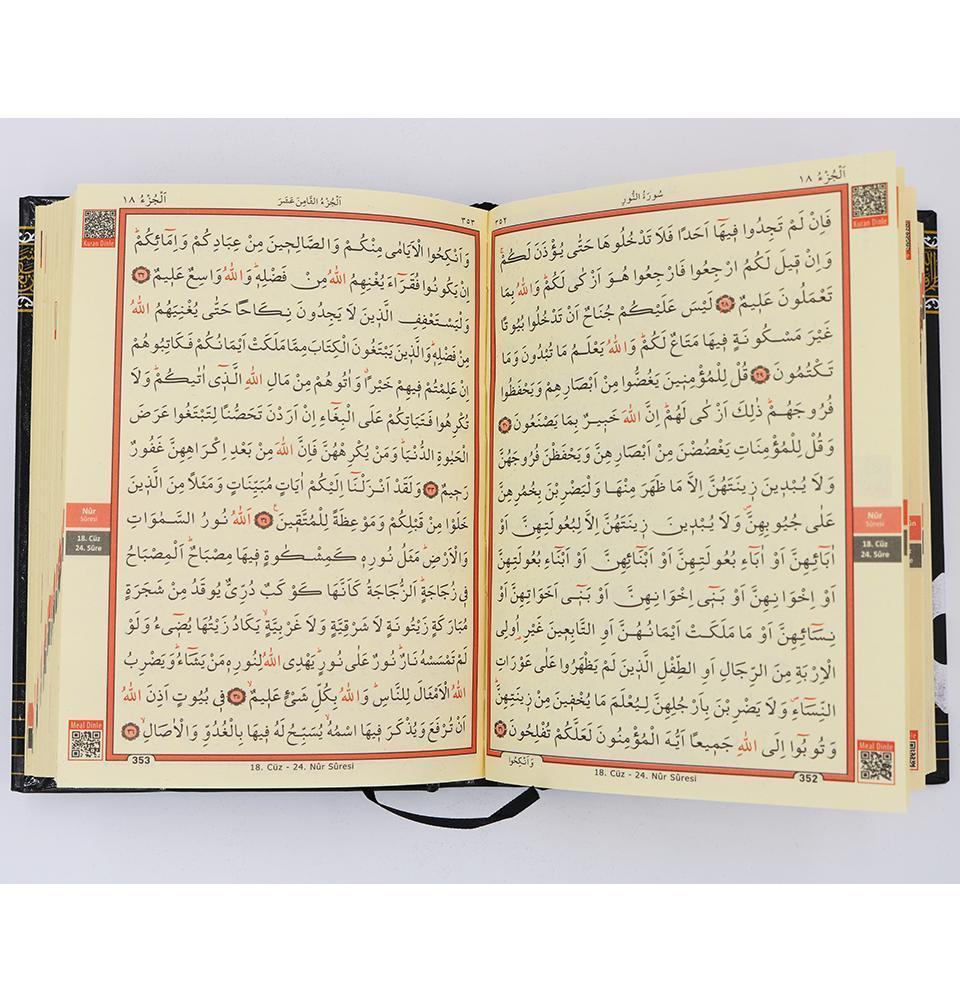 اَلْجُزْءُ ١٨
سُورَةُ النُّورِ
٣٥٢
Kuran Dinle
فَاِنْ لَمْ تَجِدُوا فٖيهَٓا اَحَدًا فَلَا تَدْخُلُوهَا حَتّٰى يُؤْذَنَ لَكُمْۚ
وَاِنْ قٖيلَ لَكُمُ ارْجِعُوا فَارْجِعُوا هُوَ اَزْكٰى لَكُمْؕ وَاللّٰهُ بِمَا
تَعْمَلُونَ عَلٖيمٌ ﴿٢٨﴾ لَيْسَ عَلَيْكُمْ جُنَاحٌ اَنْ تَدْخُلُوا بُيُوتًا
غَيْرَ مَسْكُونَةٍ فٖيهَا مَتَاعٌ لَكُمْؕ وَاللّٰهُ يَعْلَمُ مَا تُبْدُونَ وَمَا
تَكْتُمُونَ ﴿٢٩﴾ قُلْ لِلْمُؤْمِنٖينَ يَغُضُّوا مِنْ اَبْصَارِهِمْ وَيَحْفَظُوا
فُرُوجَهُمْؕ ذٰلِكَ اَزْكٰى لَهُمْؕ اِنَّ اللّٰهَ خَبٖيرٌ بِمَا يَصْنَعُونَ ﴿٣٠﴾
وَقُلْ لِلْمُؤْمِنَاتِ يَغْضُضْنَ مِنْ اَبْصَارِهِنَّ وَيَحْفَظْنَ فُرُوجَهُنَّ
وَلَا يُبْدٖينَ زٖينَتَهُنَّ اِلَّا مَا ظَهَرَ مِنْهَا وَلْيَضْرِبْنَ بِخُمُرِهِنَّ
عَلٰى جُيُوبِهِنَّۖ وَلَا يُبْدٖينَ زٖينَتَهُنَّ اِلَّا لِبُعُولَتِهِنَّ اَوْ
اٰبَٓائِهِنَّ اَوْ اٰبَٓاءِ بُعُولَتِهِنَّ اَوْ اَبْنَٓائِهِنَّ اَوْ اَبْنَٓاءِ بُعُولَتِهِنَّ
اَوْ اِخْوَانِهِنَّ اَوْ بَنٖٓى اِخْوَانِهِنَّ اَوْ بَنٖٓى اَخَوَاتِهِنَّ اَوْ
نِسَٓائِهِنَّ اَوْ مَا مَلَكَتْ اَيْمَانُهُنَّ اَوِ التَّابِعٖينَ غَيْرِ اُو۬لِى
الْاِرْبَةِ مِنَ الرِّجَالِ اَوِ الطِّفْلِ الَّذٖينَ لَمْ يَظْهَرُوا عَلٰى عَوْرَاتِ
النِّسَٓاءِࣕ وَلَا يَضْرِبْنَ بِاَرْجُلِهِنَّ لِيُعْلَمَ مَا يُخْفٖينَ مِنْ زٖينَتِهِنَّؕ
وَتُوبُٓوا اِلَى اللّٰهِ جَمٖيعًا اَيُّهَ الْمُؤْمِنُونَ لَعَلَّكُمْ تُفْلِحُونَ ﴿٣١﴾
Nûr
Sûresi
18. Cüz
24. Sûre
Meal Dinle
وَاَنْكِحُوا
18. Cüz - 24. Nûr Sûresi
352
اَلْجُزْءُ ١٨
اَلْجُزْءُ الثَّامِنَ عَشَرَ
٣٥٣
Kuran Dinle
وَاَنْكِحُوا الْاَيَامٰى مِنْكُمْ وَالصَّالِحٖينَ مِنْ عِبَادِكُمْ وَاِمَٓائِكُمْؕ
اِنْ يَكُونُوا فُقَرَٓاءَ يُغْنِهِمُ اللّٰهُ مِنْ فَضْلِهٖؕ وَاللّٰهُ وَاسِعٌ عَلٖيمٌ ﴿٣٢﴾
وَلْيَسْتَعْفِفِ الَّذٖينَ لَا يَجِدُونَ نِكَاحًا حَتّٰى يُغْنِيَهُمُ اللّٰهُ
مِنْ فَضْلِهٖؕ وَالَّذٖينَ يَبْتَغُونَ الْكِتَابَ مِمَّا مَلَكَتْ اَيْمَانُكُمْ فَكَاتِبُوهُمْ
اِنْ عَلِمْتُمْ فٖيهِمْ خَيْرًاࣗ وَاٰتُوهُمْ مِنْ مَالِ اللّٰهِ الَّذٖٓى اٰتٰيكُمْؕ وَلَا
تُكْرِهُوا فَتَيَاتِكُمْ عَلَى الْبِغَٓاءِ اِنْ اَرَدْنَ تَحَصُّنًا لِتَبْتَغُوا عَرَضَ
الْحَيٰوةِ الدُّنْيَاؕ وَمَنْ يُكْرِهْهُنَّ فَاِنَّ اللّٰهَ مِنْ بَعْدِ اِكْرَاهِهِنَّ غَفُورٌ
رَحٖيمٌ ﴿٣٣﴾ وَلَقَدْ اَنْزَلْنَٓا اِلَيْكُمْ اٰيَاتٍ مُبَيِّنَاتٍ وَمَثَلًا مِنَ الَّذٖينَ
خَلَوْا مِنْ قَبْلِكُمْ وَمَوْعِظَةً لِلْمُتَّقٖينَ ﴿٣٤﴾ اَللّٰهُ نُورُ السَّمٰوَاتِ
وَالْاَرْضِؕ مَثَلُ نُورِهٖ كَمِشْكٰوةٍ فٖيهَا مِصْبَاحٌؕ اَلْمِصْبَاحُ
فٖى زُجَاجَةٍؕ اَلزُّجَاجَةُ كَاَنَّهَا كَوْكَبٌ دُرِّىٌّ يُوقَدُ مِنْ شَجَرَةٍ
مُبَارَكَةٍ زَيْتُونَةٍ لَا شَرْقِيَّةٍ وَلَا غَرْبِيَّةٍۙ يَكَادُ زَيْتُهَا يُضٖٓىءُ وَلَوْ
لَمْ تَمْسَسْهُ نَارٌؕ نُورٌ عَلٰى نُورٍؕ يَهْدِى اللّٰهُ لِنُورِهٖ مَنْ يَشَٓاءُؕ وَيَضْرِبُ
اللّٰهُ الْاَمْثَالَ لِلنَّاسِؕ وَاللّٰهُ بِكُلِّ شَىْءٍ عَلٖيمٌۙ ﴿٣٥﴾ فٖى بُيُوتٍ اَذِنَ اللّٰهُ
اَنْ تُرْفَعَ وَيُذْكَرَ فٖيهَا اسْمُهُۙ يُسَبِّحُ لَهُ فٖيهَا بِالْغُدُوِّ وَالْاٰصَالِۙ ﴿٣٦﴾
Nûr
Sûresi
18. Cüz
24. Sûre
Meal Dinle
353
18. Cüz - 24. Nûr Sûresi